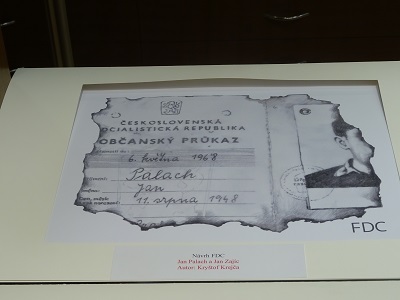 ČESKOSLOVENSKÁ
SOCIALISTICKÁ REPUBLIKA
OBČANSKÝ PRŮKAZ
6. května 1968
Palach
Jan
11. srpna 1948
FDC
Návrh FDC
Jan Palach a Jan Zajíc
Autor: Kryštof Krejča